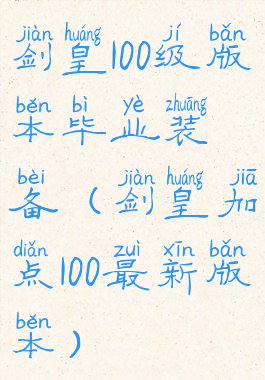 jiàn huáng jí bǎn
剑皇100级版
běn bì yè zhuāng
本毕业装
bèi jiàn huáng jiā
备(剑皇加
diǎn zuì xīn bǎn
点100最新版
běn
本)